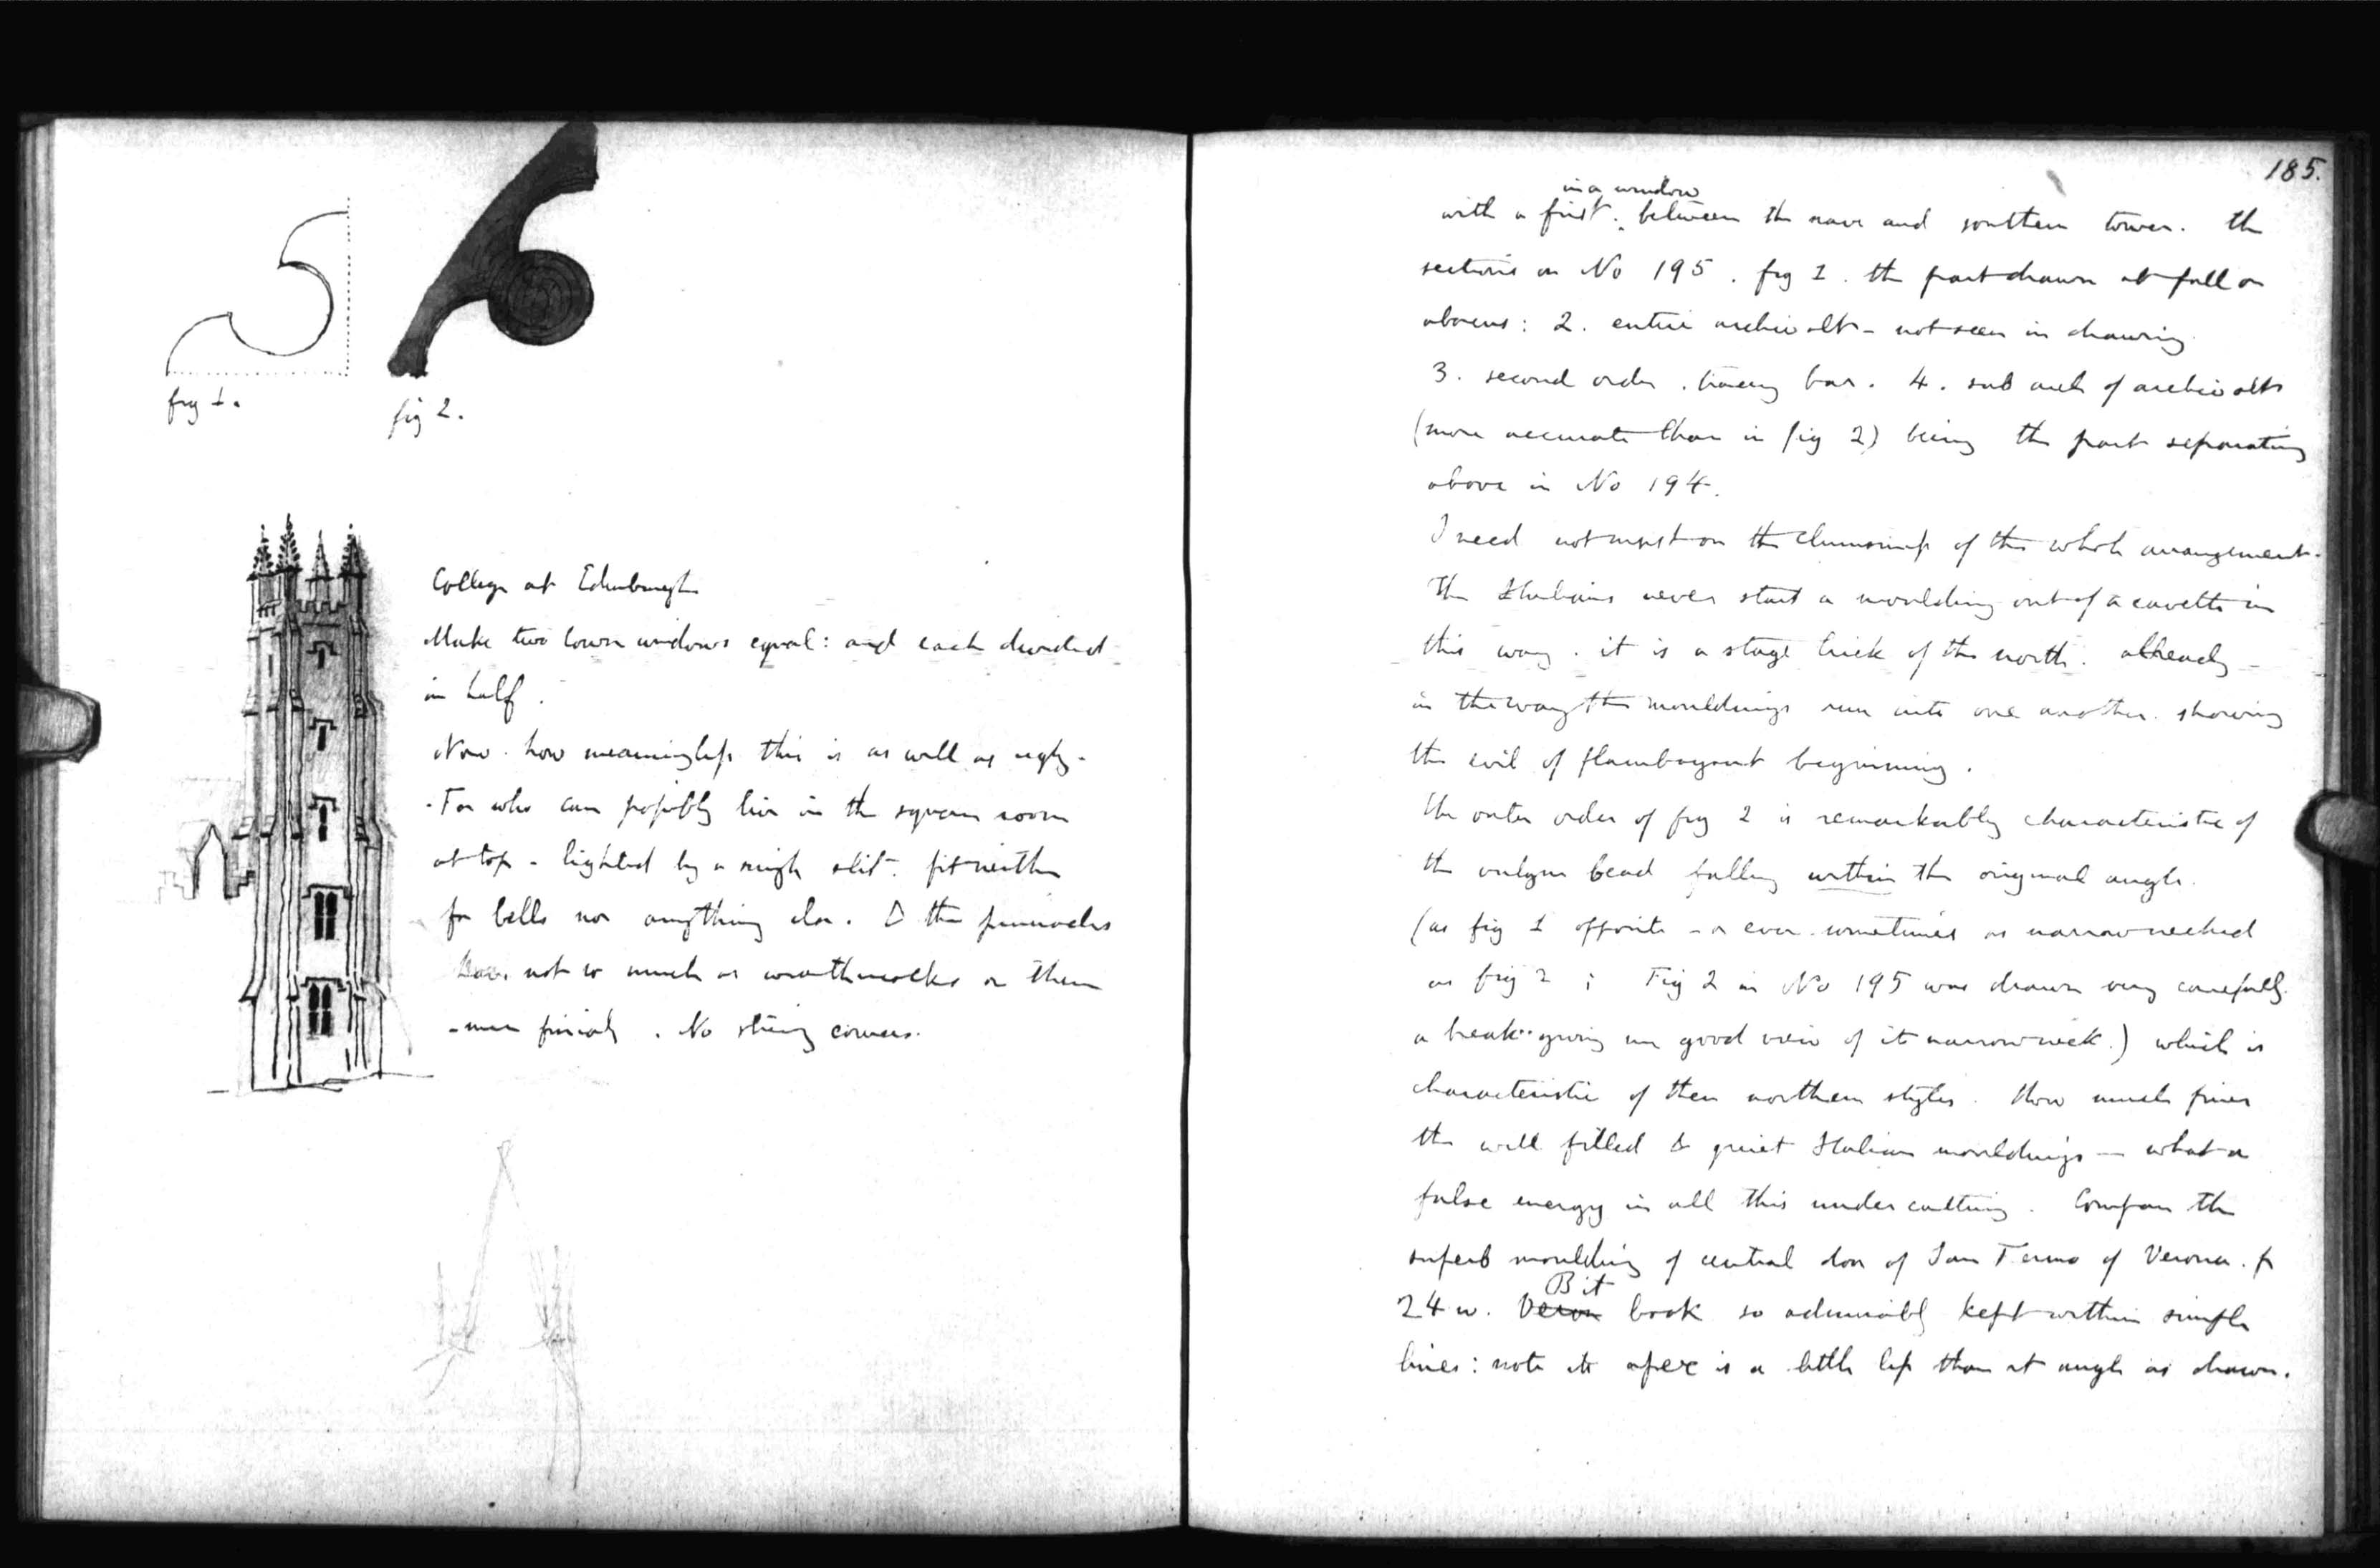 fig 1.
fig 2.
College at Edinburgh
Make two lower windows equal: and each divided
in half.
Now. how meaningless this is as well as ugly.
For who can possibly live in the square room
at top - lighted by a single slit. fit neither
for bells nor anything else. & the pinnacles
have not so much as weathercocks on them
- mere finials. No string courses.
185.
in a window
with a first. between the nave and southern tower. the
sections on No 195. fig 1. the part drawn at full on
abacus: 2. entire archivolt - not seen in drawing.
3. second order. tracery bar. 4. sub arch of archivolt
(more accurate than in fig 2) being the part separating
above in No 194.
I need not insist on the clumsiness of the whole arrangement.
The Italians never start a moulding out of a cavetto in
this way. it is a stage trick of the north. already -
in the way the mouldings run into one another. showing
the evil of flamboyant beginning.
The outer order of fig 2 is remarkably characteristic of
the vulgar bead falling within the original angle.
(as fig 1 opposite - or even sometimes as narrow necked
as fig 2; Fig 2 in No 195 was drawn very carefully.
a break giving me good view of its narrow neck.) which is
characteristic of these northern styles. How much finer
the well filled & quiet Italian mouldings - what a
false energy in all this under cutting. Compare the
superb moulding of central door of San Fermo of Verona. p
Bit
24 w. Veron book so admirably kept within simple
lines: note its apex is a little less than rt angle as drawn.